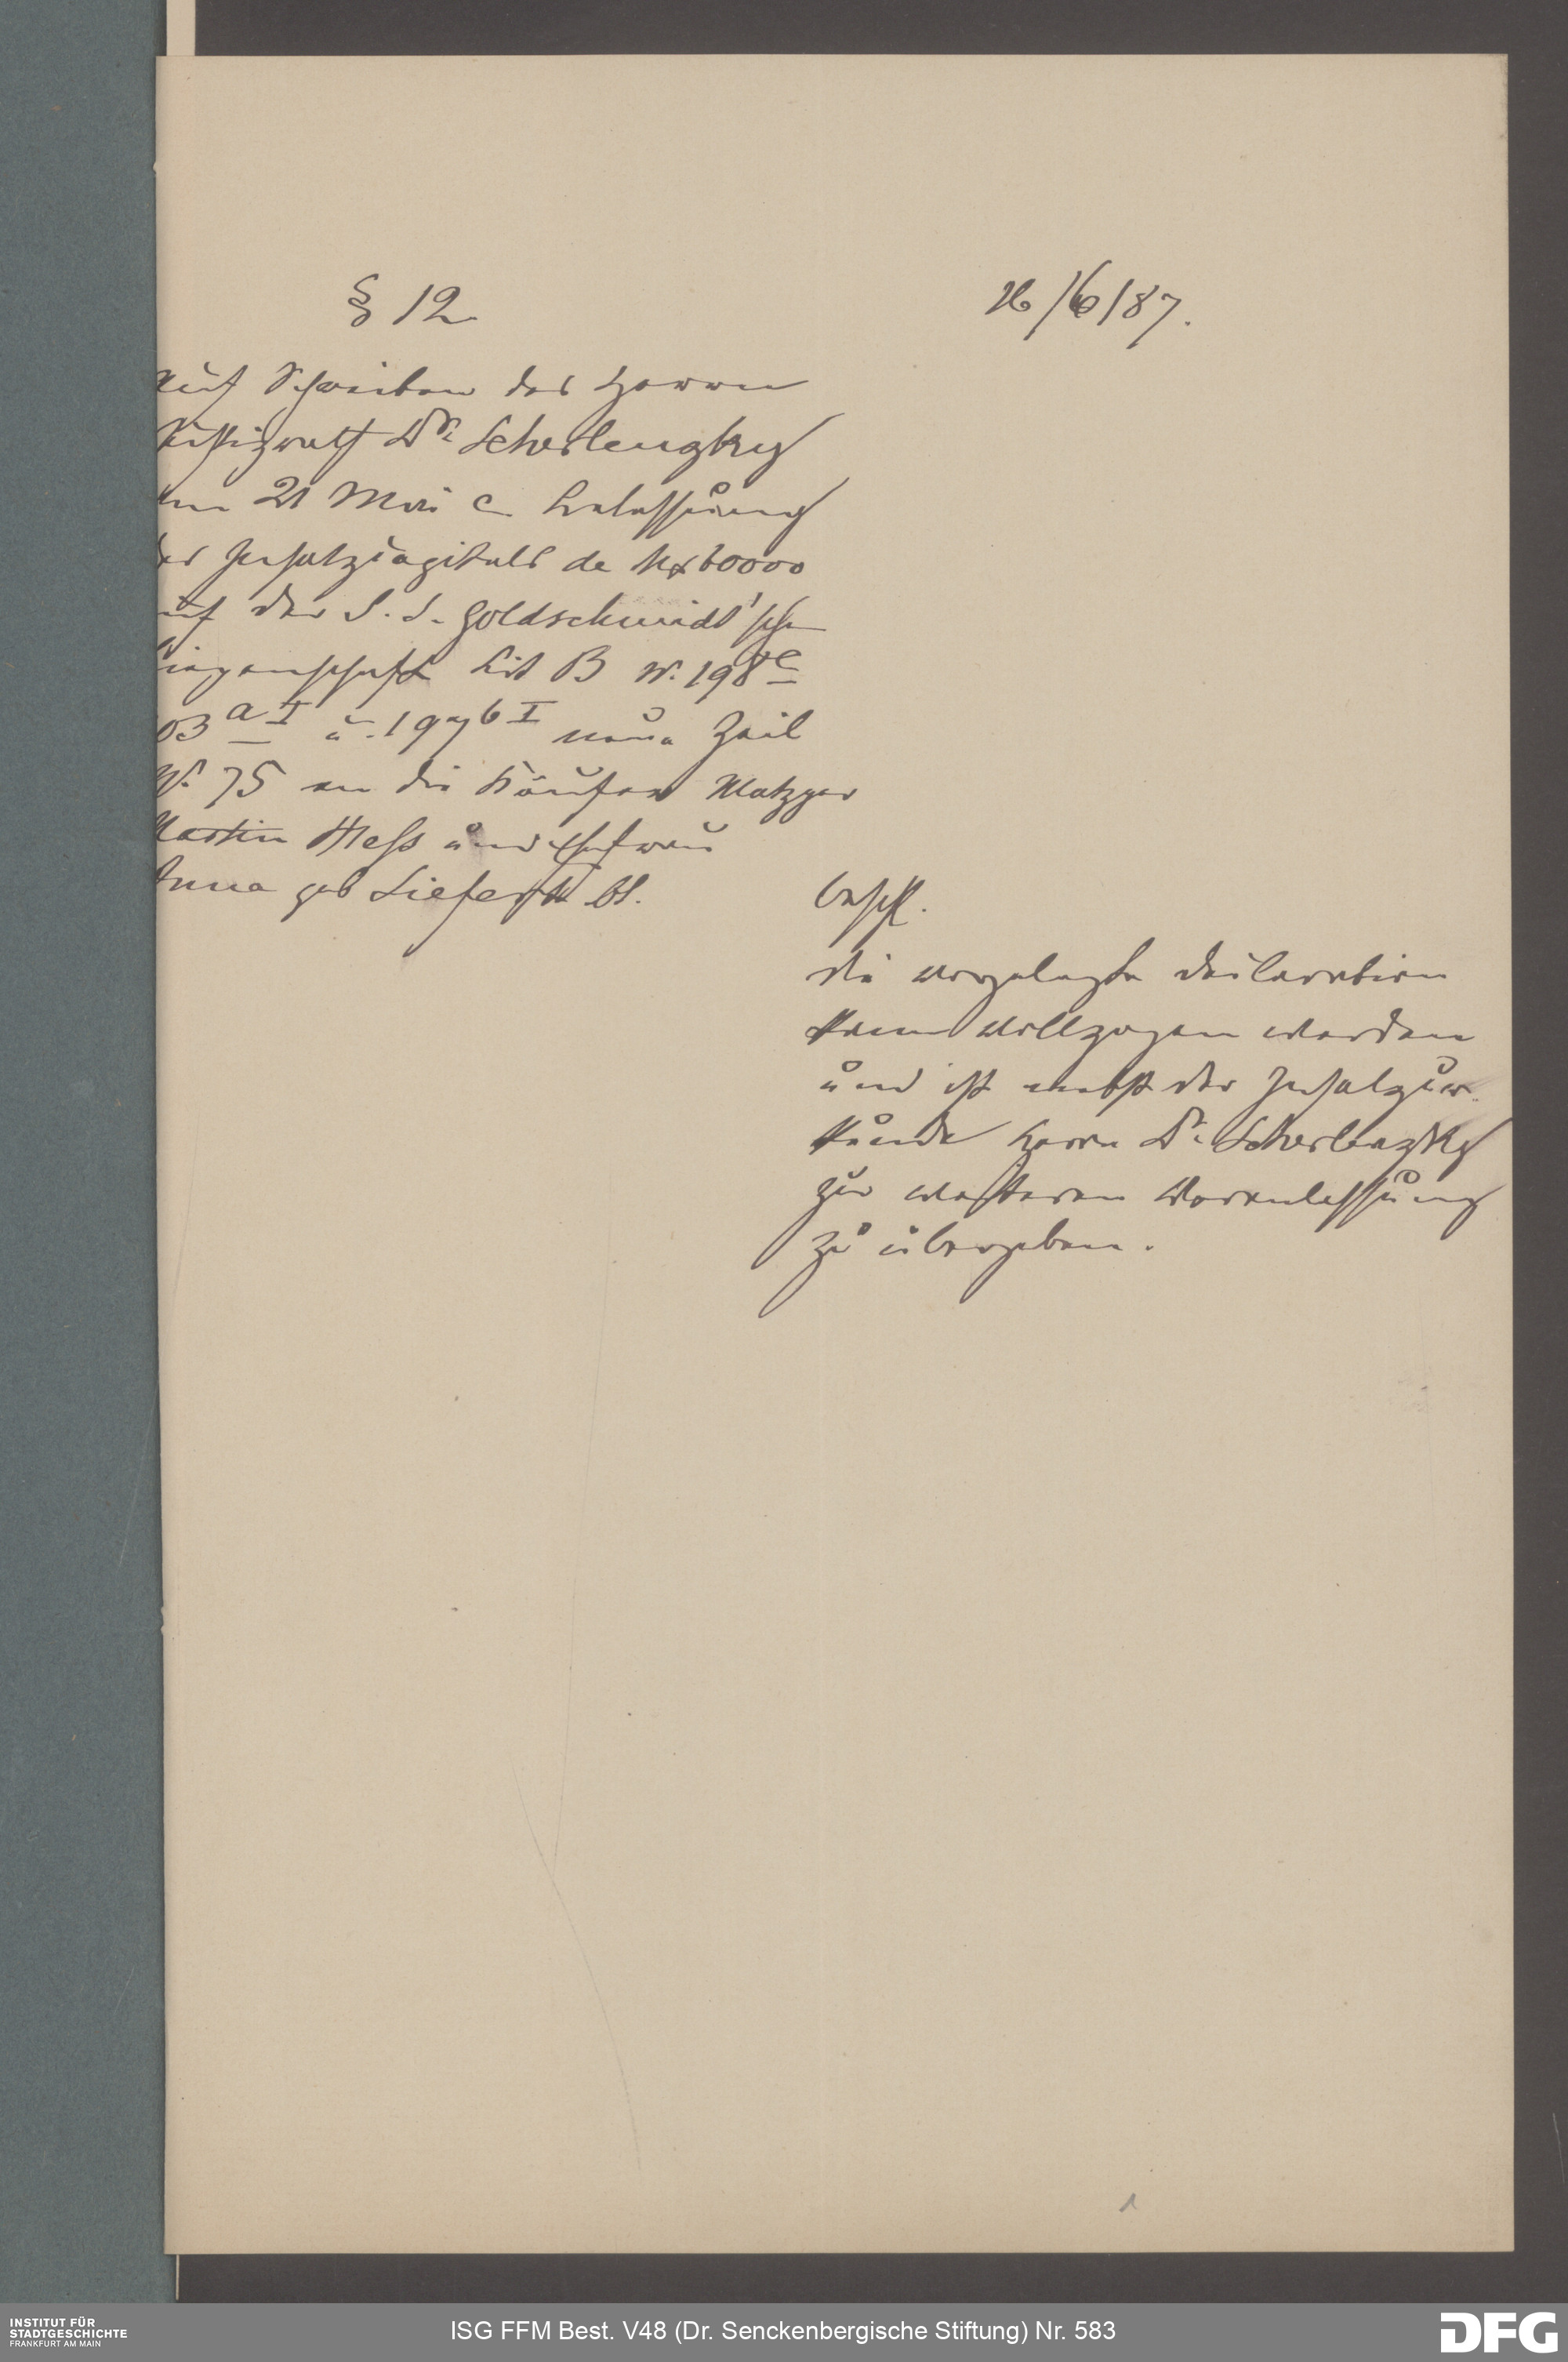 § 12
16/6/87.
Auf Schreiben des Herrn
Justizrath Dr. Scherlenzky
vom 21 Mai c. Belassung
des Insatzcapitals de M 60000
auf der S. S. Goldschmidt'schen
Liegenschaft Lit B N. 198 c
203 a I u. 197 b I neue Zeil
N. 75 an die Käufer Metzger
Martin Hess und Ehefrau
Anna geb Liefer btl.
beschl.
die vorgelegte Declaration
kann vollzogen werden
und ist nebst der Insatzur-
kunde Herrn Dr. Scherlenzky
zur weiteren Veranlassung
zu übergeben.
1
INSTITUT FÜR
STADTGESCHICHTE
FRANKFURT AM MAIN
ISG FFM Best. V48 (Dr. Senckenbergische Stiftung) Nr. 583
DFG